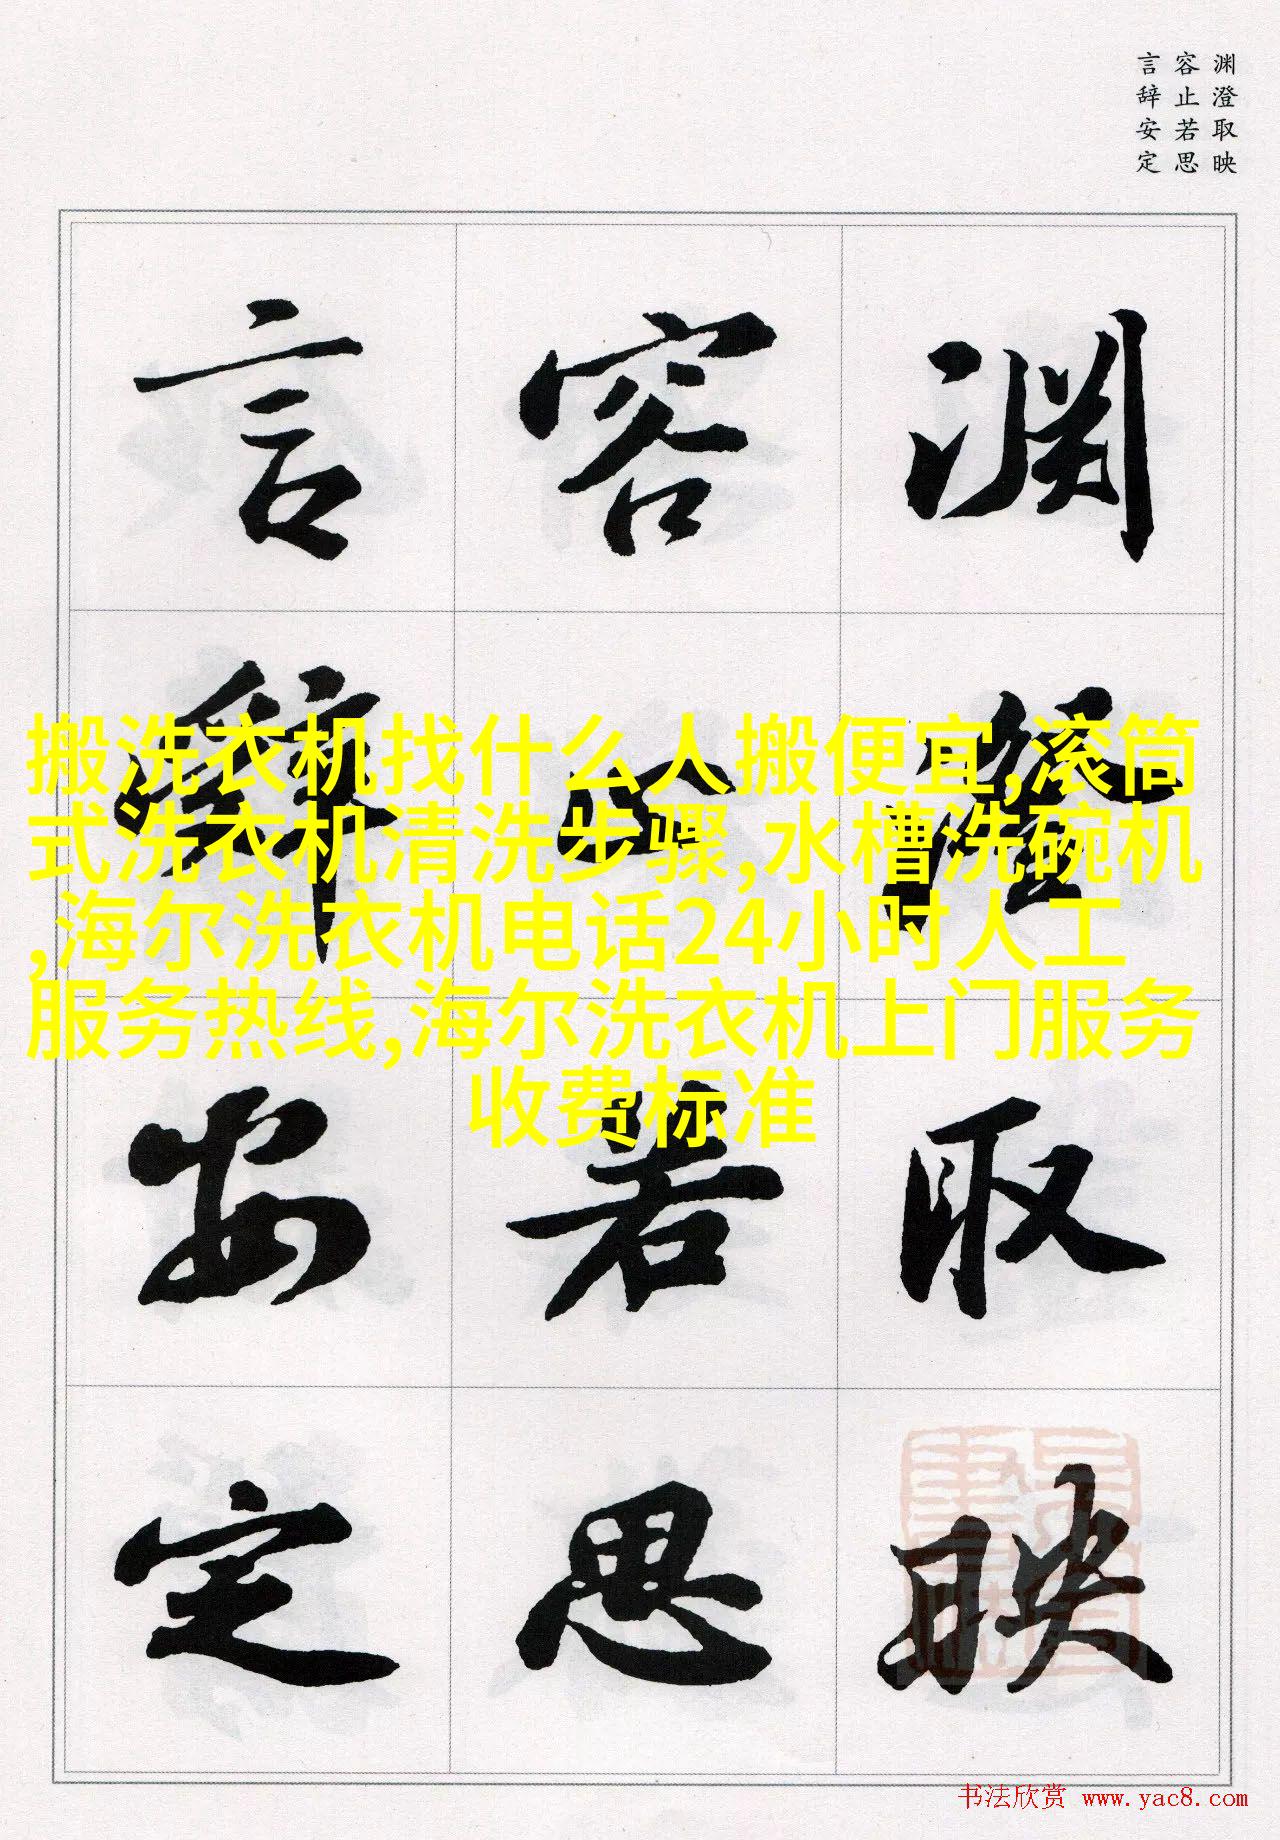 渊澄取映
容止若思
言辞安定
渊澄取映
容止若思
言辭安定
搬洗衣机找什么人搬便宜,滚筒
式洗衣机清洗步骤,水槽洗碗机
,海尔洗衣机电话24小时人工
服务热线,海尔洗衣机上门服务
收费标准
书法欣赏 www.yac8.com